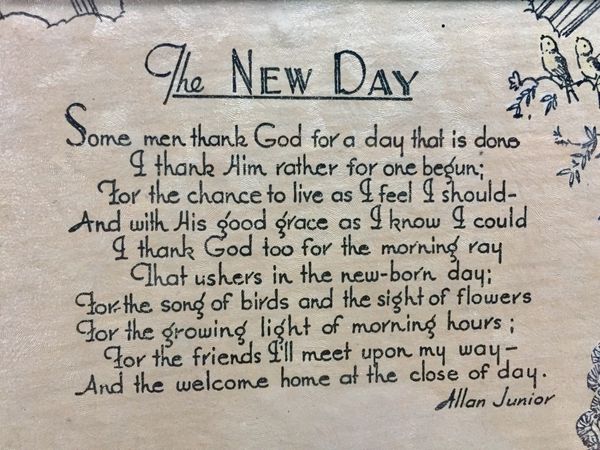 The NEW DAY
Some men thank God for a day that is done
I thank Him rather for one begun;
For the chance to live as I feel I should-
And with His good grace as I know I could
I thank God too for the morning ray
That ushers in the new-born day;
For the song of birds and the sight of flowers
For the growing light of morning hours;
For the friends I'll meet upon my way-
And the welcome home at the close of day.
Allan Junior